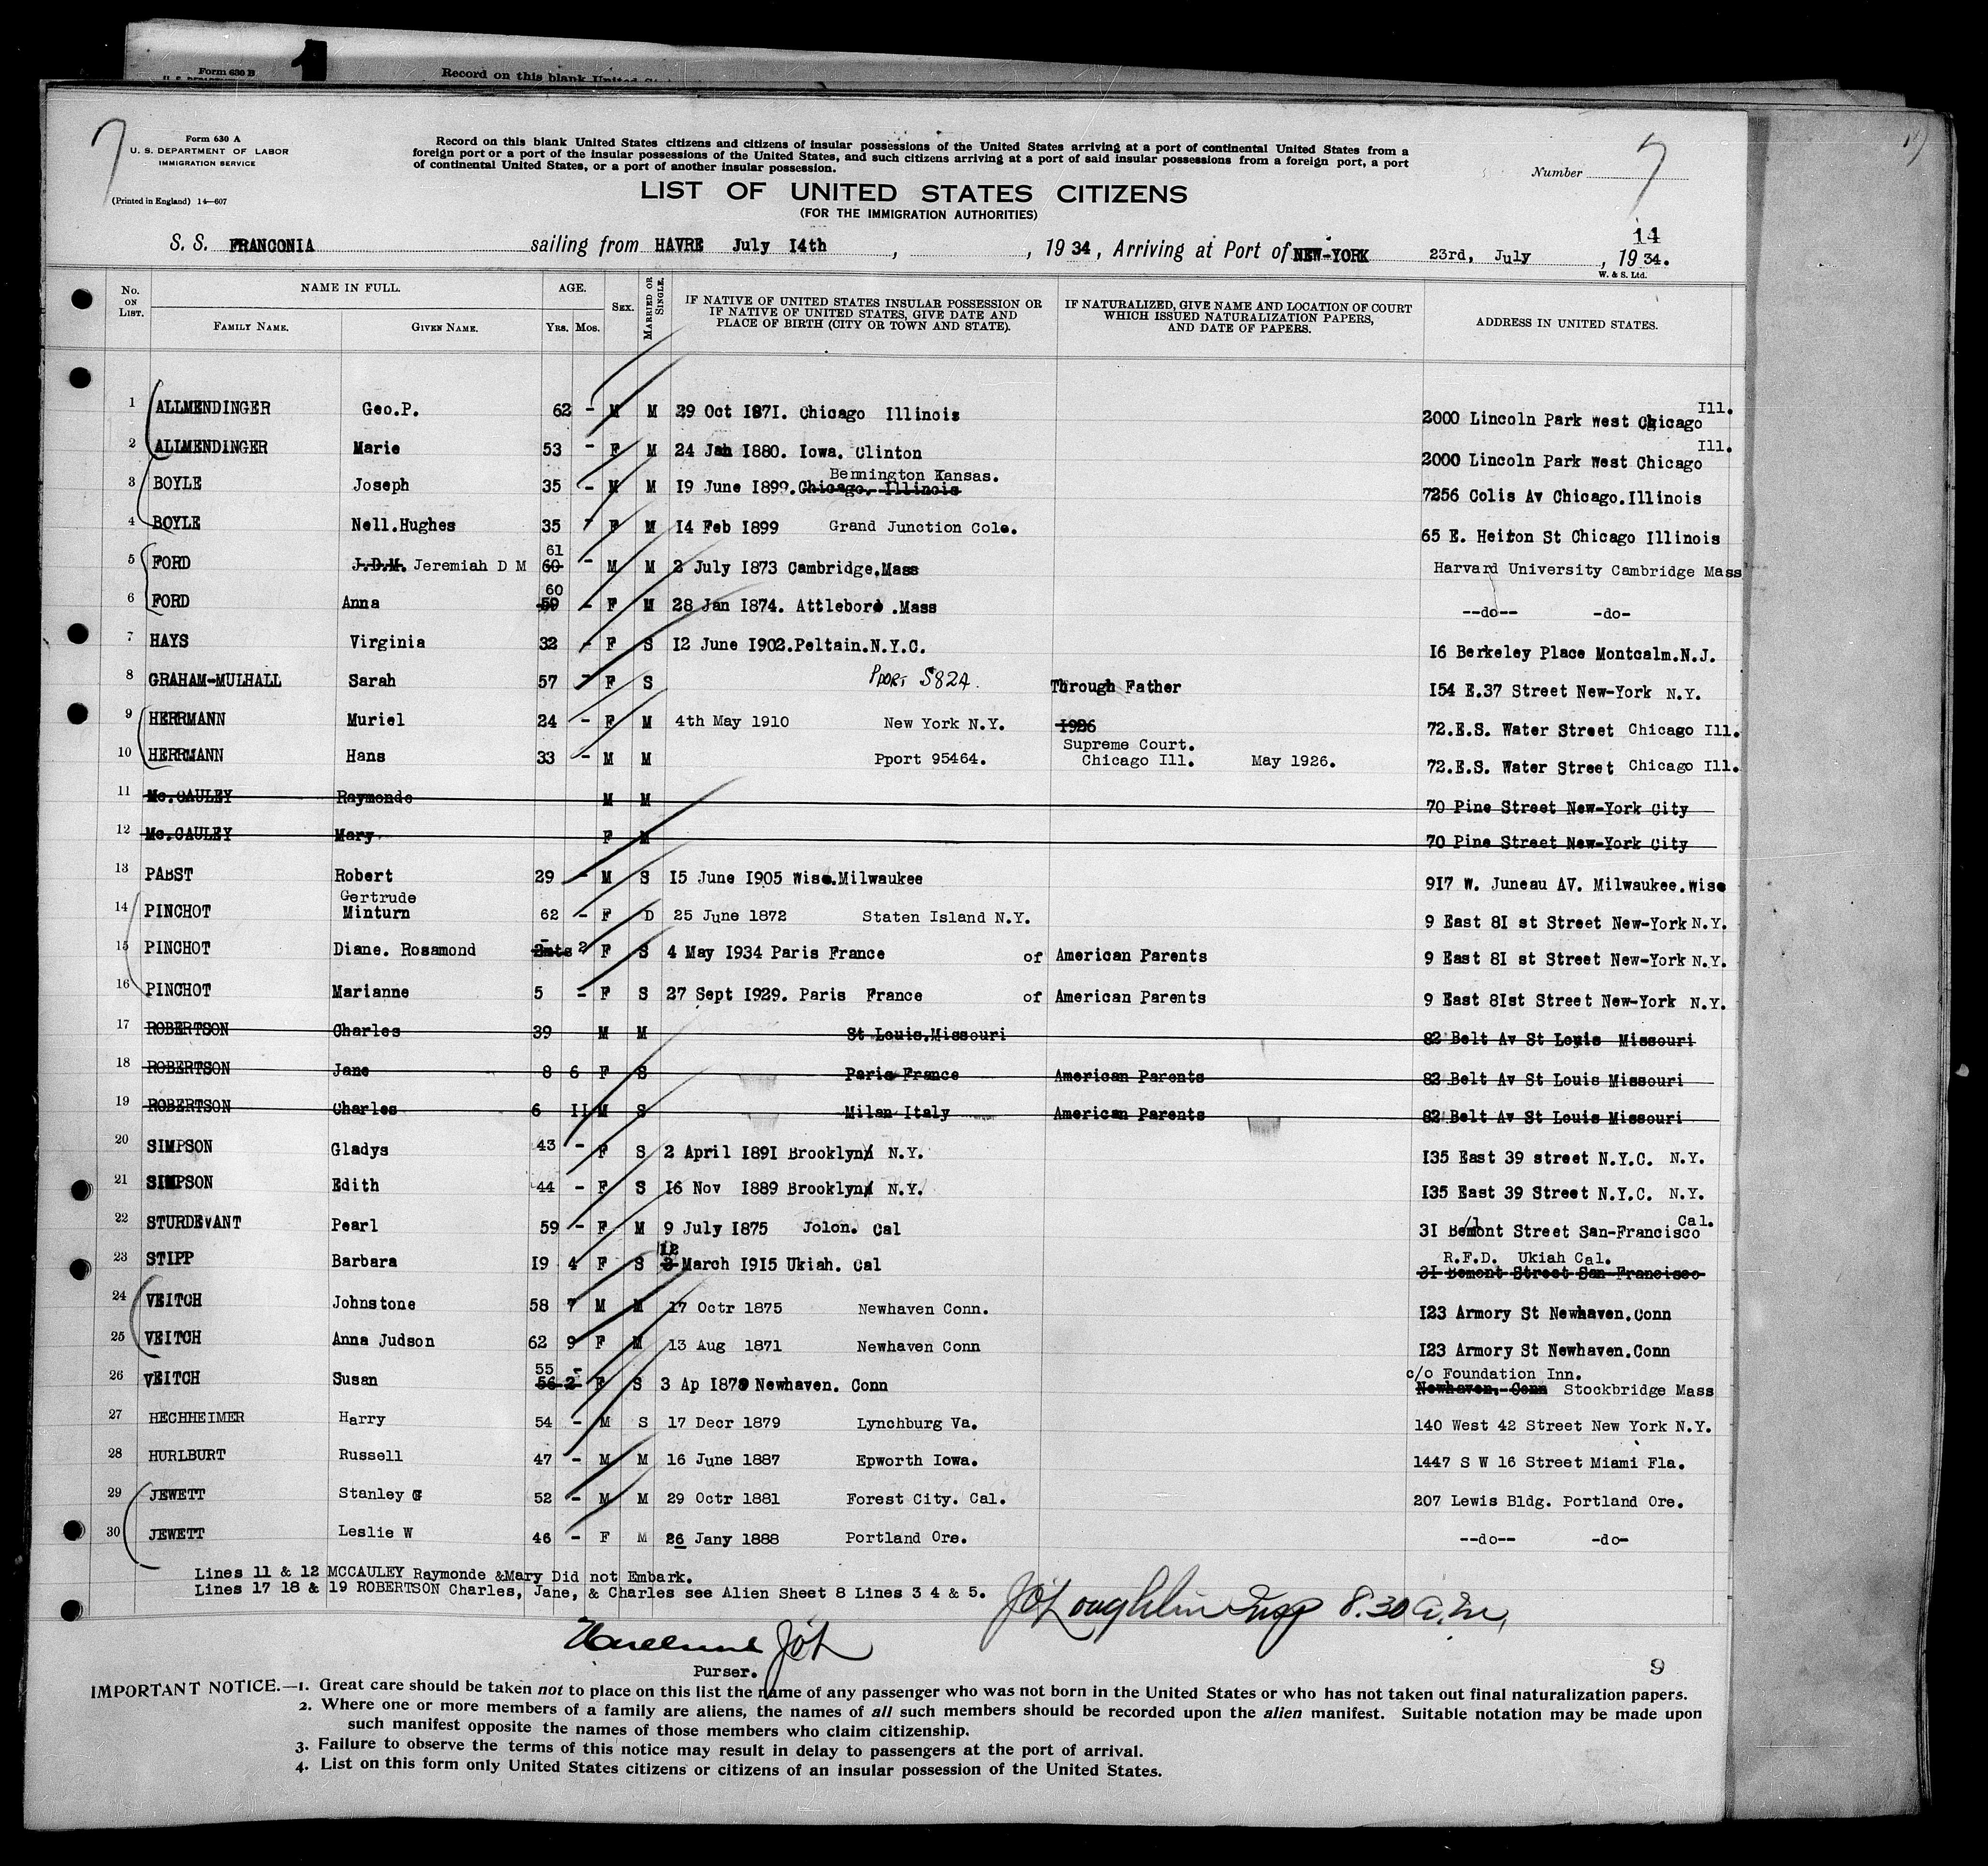 Form 630 B
Record on this blank United
7
Form 630 A
U. S. DEPARTMENT OF LABOR
IMMIGRATION SERVICE
(Printed in England) 14—607
Record on this blank United States citizens and citizens of insular possessions of the United States arriving at a port of continental United States from a
foreign port or a port of the insular possessions of the United States, and such citizens arriving at a port of said insular possessions from a foreign port, a port
of continental United States, or a port of another insular possession.
Number 7
LIST OF UNITED STATES CITIZENS
(FOR THE IMMIGRATION AUTHORITIES)
14
S. S. FRANCONIA sailing from HAVRE July I4th , , 19 34, Arriving at Port of NEW-YORK 23rd, July , 19 34.
W. & S. Ltd.
No. ON LIST. NAME IN FULL. FAMILY NAME. GIVEN NAME. AGE. Yrs. Mos. SEX. MARRIED OR SINGLE. IF NATIVE OF UNITED STATES INSULAR POSSESSION OR IF NATIVE OF UNITED STATES, GIVE DATE AND PLACE OF BIRTH (CITY OR TOWN AND STATE). IF NATURALIZED, GIVE NAME AND LOCATION OF COURT WHICH ISSUED NATURALIZATION PAPERS, AND DATE OF PAPERS. ADDRESS IN UNITED STATES.
1 ALLMENDINGER Geo.P. 62 - M M 29 Oct I87I. Chicago Illinois 2000 Lincoln Park west Chicago Ill.
2 ALLMENDINGER Marie 53 - F M 24 Jan I880. Iowa. Clinton 2000 Lincoln Park West Chicago Ill.
Bennington Kansas.
3 BOYLE Joseph 35 - M M I9 June I899. Chicago, Illinois 7256 Colis Av Chicago.Illinois
4 BOYLE Nell.Hughes 35 - F M I4 Feb I899 Grand Junction Cole. 65 E. Heiron St Chicago Illinois
61
5 FORD J.D.M. Jeremiah D M 60 - M M 2 July I873 Cambridge.Mass Harvard University Cambridge Mass
60
6 FORD Anna 59 - F M 28 Jan I874. Attleboro .Mass --do-- -do-
7 HAYS Virginia 32 - F S I2 June I902.Peltain.N.Y.C. I6 Berkeley Place Montcalm.N.J.
8 GRAHAM-MULHALL Sarah 57 - F S Pport 5824. Through Father I54 E.37 Street New-York N.Y.
9 HERRMANN Muriel 24 - F M 4th May 1910 New York N.Y. I926 72.E.S. Water Street Chicago Ill.
Supreme Court.
10 HERRMANN Hans 33 - M M Pport 95464. Chicago Ill. May 1926. 72.E.S. Water Street Chicago Ill.
11 Mc.CAULEY Raymonde M M 70 Pine Street New-York City
12 Mc.CAULEY Mary F M 70 Pine Street New-York City
13 PABST Robert 29 - M S I5 June I905 Wisc.Milwaukee 9I7 W. Juneau AV. Milwaukee.Wisc
Gertrude
14 PINCHOT Minturn 62 - F D 25 June 1872 Staten Island N.Y. 9 East 8I st Street New-York N.Y.
15 PINCHOT Diane. Rosamond 2mts - 2 F S 4 May I934 Paris France of American Parents 9 East 8I st Street New-York N.Y.
16 PINCHOT Marianne 5 - F S 27 Sept I929. Paris France of American Parents 9 East 8Ist Street New-York N.Y.
17 ROBERTSON Charles 39 M M St Louis.Missouri 82 Belt Av St Louis Missouri
18 ROBERTSON Jane 8 6 F S Paris France American Parents 82 Belt Av St Louis Missouri
19 ROBERTSON Charles 6 II M S Milan Italy American Parents 82 Belt Av St Louis Missouri
20 SIMPSON Gladys 43 - F S 2 April I89I Brooklyn N.Y. I35 East 39 street N.Y.C. N.Y.
21 SIMPSON Edith 44 - F S I6 Nov I889 Brooklyn N.Y. I35 East 39 Street N.Y.C. N.Y.
22 STURDEVANT Pearl 59 - F M 9 July I875 Jolon. Cal 3I Bemont Street San-Francisco Cal.
12 R.F.D. Ukiah Cal.
23 STIPP Barbara I9 4 F S 3 March I9I5 Ukiah. Cal 3I Bemont Street San-Francisco
24 VEITCH Johnstone 58 7 M M 17 Octr 1875 Newhaven Conn. I23 Armory St Newhaven.Conn
25 VEITCH Anna Judson 62 9 F M 13 Aug 1871 Newhaven Conn I23 Armory St Newhaven.Conn
55 - c/o Foundation Inn.
26 VEITCH Susan 56 2 F S 3 Ap I879 Newhaven. Conn Newhaven. Conn Stockbridge Mass
27 HECHHEIMER Harry 54 - M S 17 Decr 1879 Lynchburg Va. 140 West 42 Street New York N.Y.
28 HURLBURT Russell 47 - M M 16 June 1887 Epworth Iowa. 1447 S W 16 Street Miami Fla.
29 JEWETT Stanley G 52 - M M 29 Octr 1881 Forest City. Cal. 207 Lewis Bldg. Portland Ore.
30 JEWETT Leslie W 46 - F M 26 Jany 1888 Portland Ore. --do-- -do-
Lines 11 & 12 MCCAULEY Raymonde &Mary Did not Embark.
Lines 17 18 & 19 ROBERTSON Charles, Jane, & Charles see Alien Sheet 8 Lines 3 4 & 5.
JO'Loughlin Insp 8.30 a.m.
Purser.
9
IMPORTANT NOTICE.—1. Great care should be taken not to place on this list the name of any passenger who was not born in the United States or who has not taken out final naturalization papers.
2. Where one or more members of a family are aliens, the names of all such members should be recorded upon the alien manifest. Suitable notation may be made upon
such manifest opposite the names of those members who claim citizenship.
3. Failure to observe the terms of this notice may result in delay to passengers at the port of arrival.
4. List on this form only United States citizens or citizens of an insular possession of the United States.